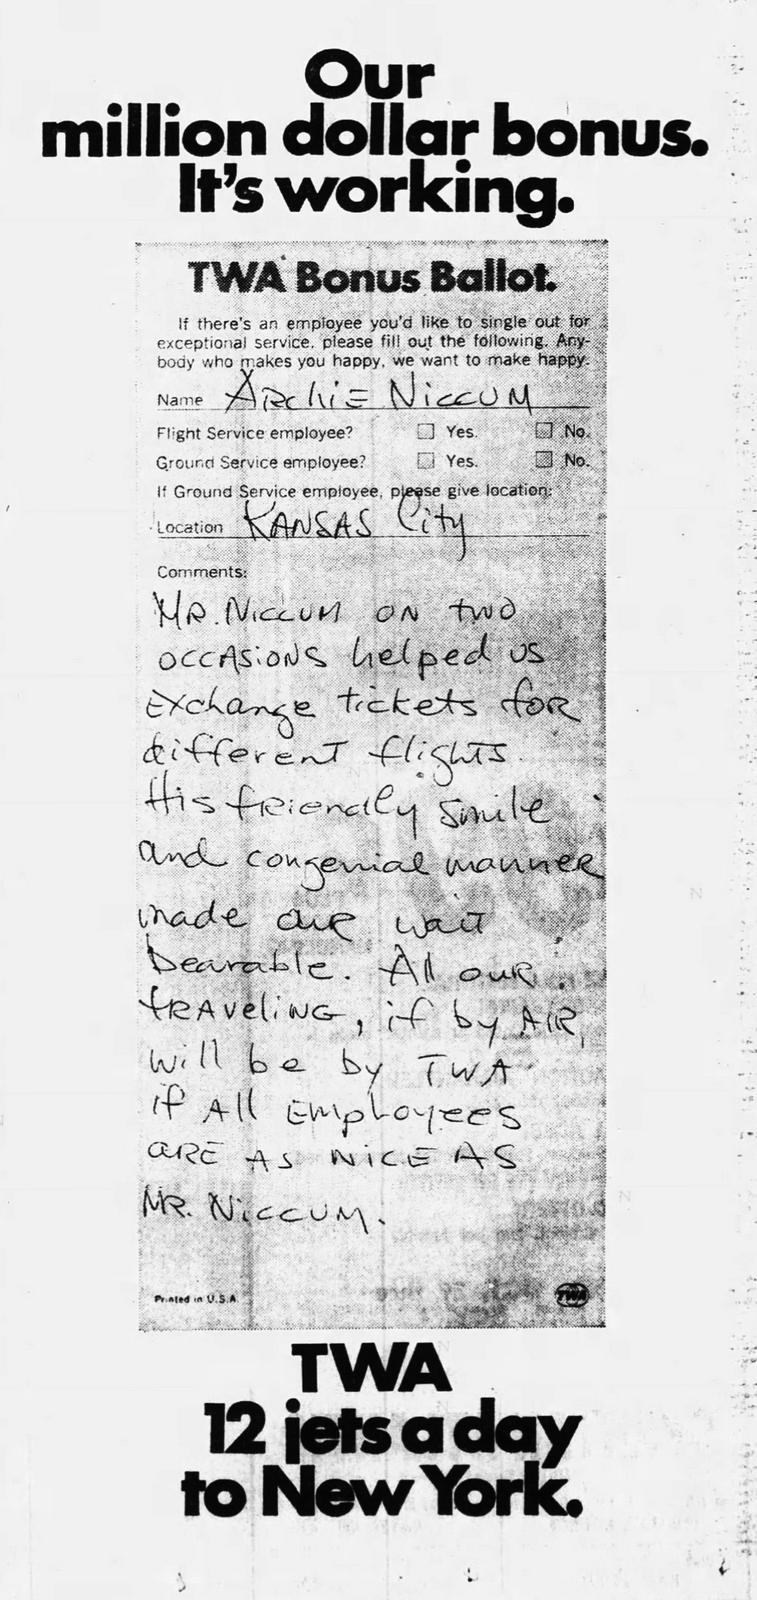 Our
million dollar bonus.
It's working.
TWA Bonus Ballot.
If there's an employee you'd like to single out for
exceptional service, please fill out the following. Any-
body who makes you happy, we want to make happy.
Name Archie Niccum
Flight Service employee? Yes. No.
Ground Service employee? Yes. No.
If Ground Service employee, please give location:
Location Kansas City
Comments:
Mr. Niccum on two
occasions helped us
exchange tickets for
different flights.
His friendly smile
and congenial manner
made our wait
bearable. All our
traveling, if by air,
will be by TWA
if all employees
are as nice as
Mr. Niccum.
Printed in U.S.A.
TWA
TWA
12 jets a day
to New York.